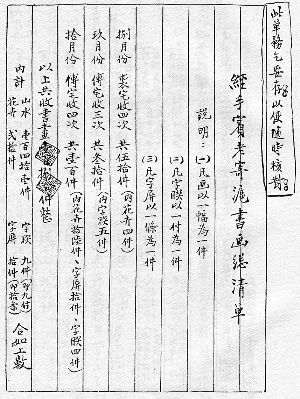 此單務乞妥存以便隨時核對
經手賓老寄滬書画總清單
說明：(一)凡画以一幅為一件
(二)凡字聯以一付為一件
(三)凡字屏以一條為一件
捌月份 裴宅收四次 共伍拾件(內花卉四件)
玖月份 傅宅收三次 共叁拾件(內字聯五件)
拾月份 傅宅收四次 共壹百件(內花卉拾陸件、字屏拾件、字聯四件)
以上共收書畫 捌拾件整
內計 山水 壹百四拾壹件 字聯 九件(即九付)
花卉 弍拾件 字屏 拾件(即拾條) 合如上數